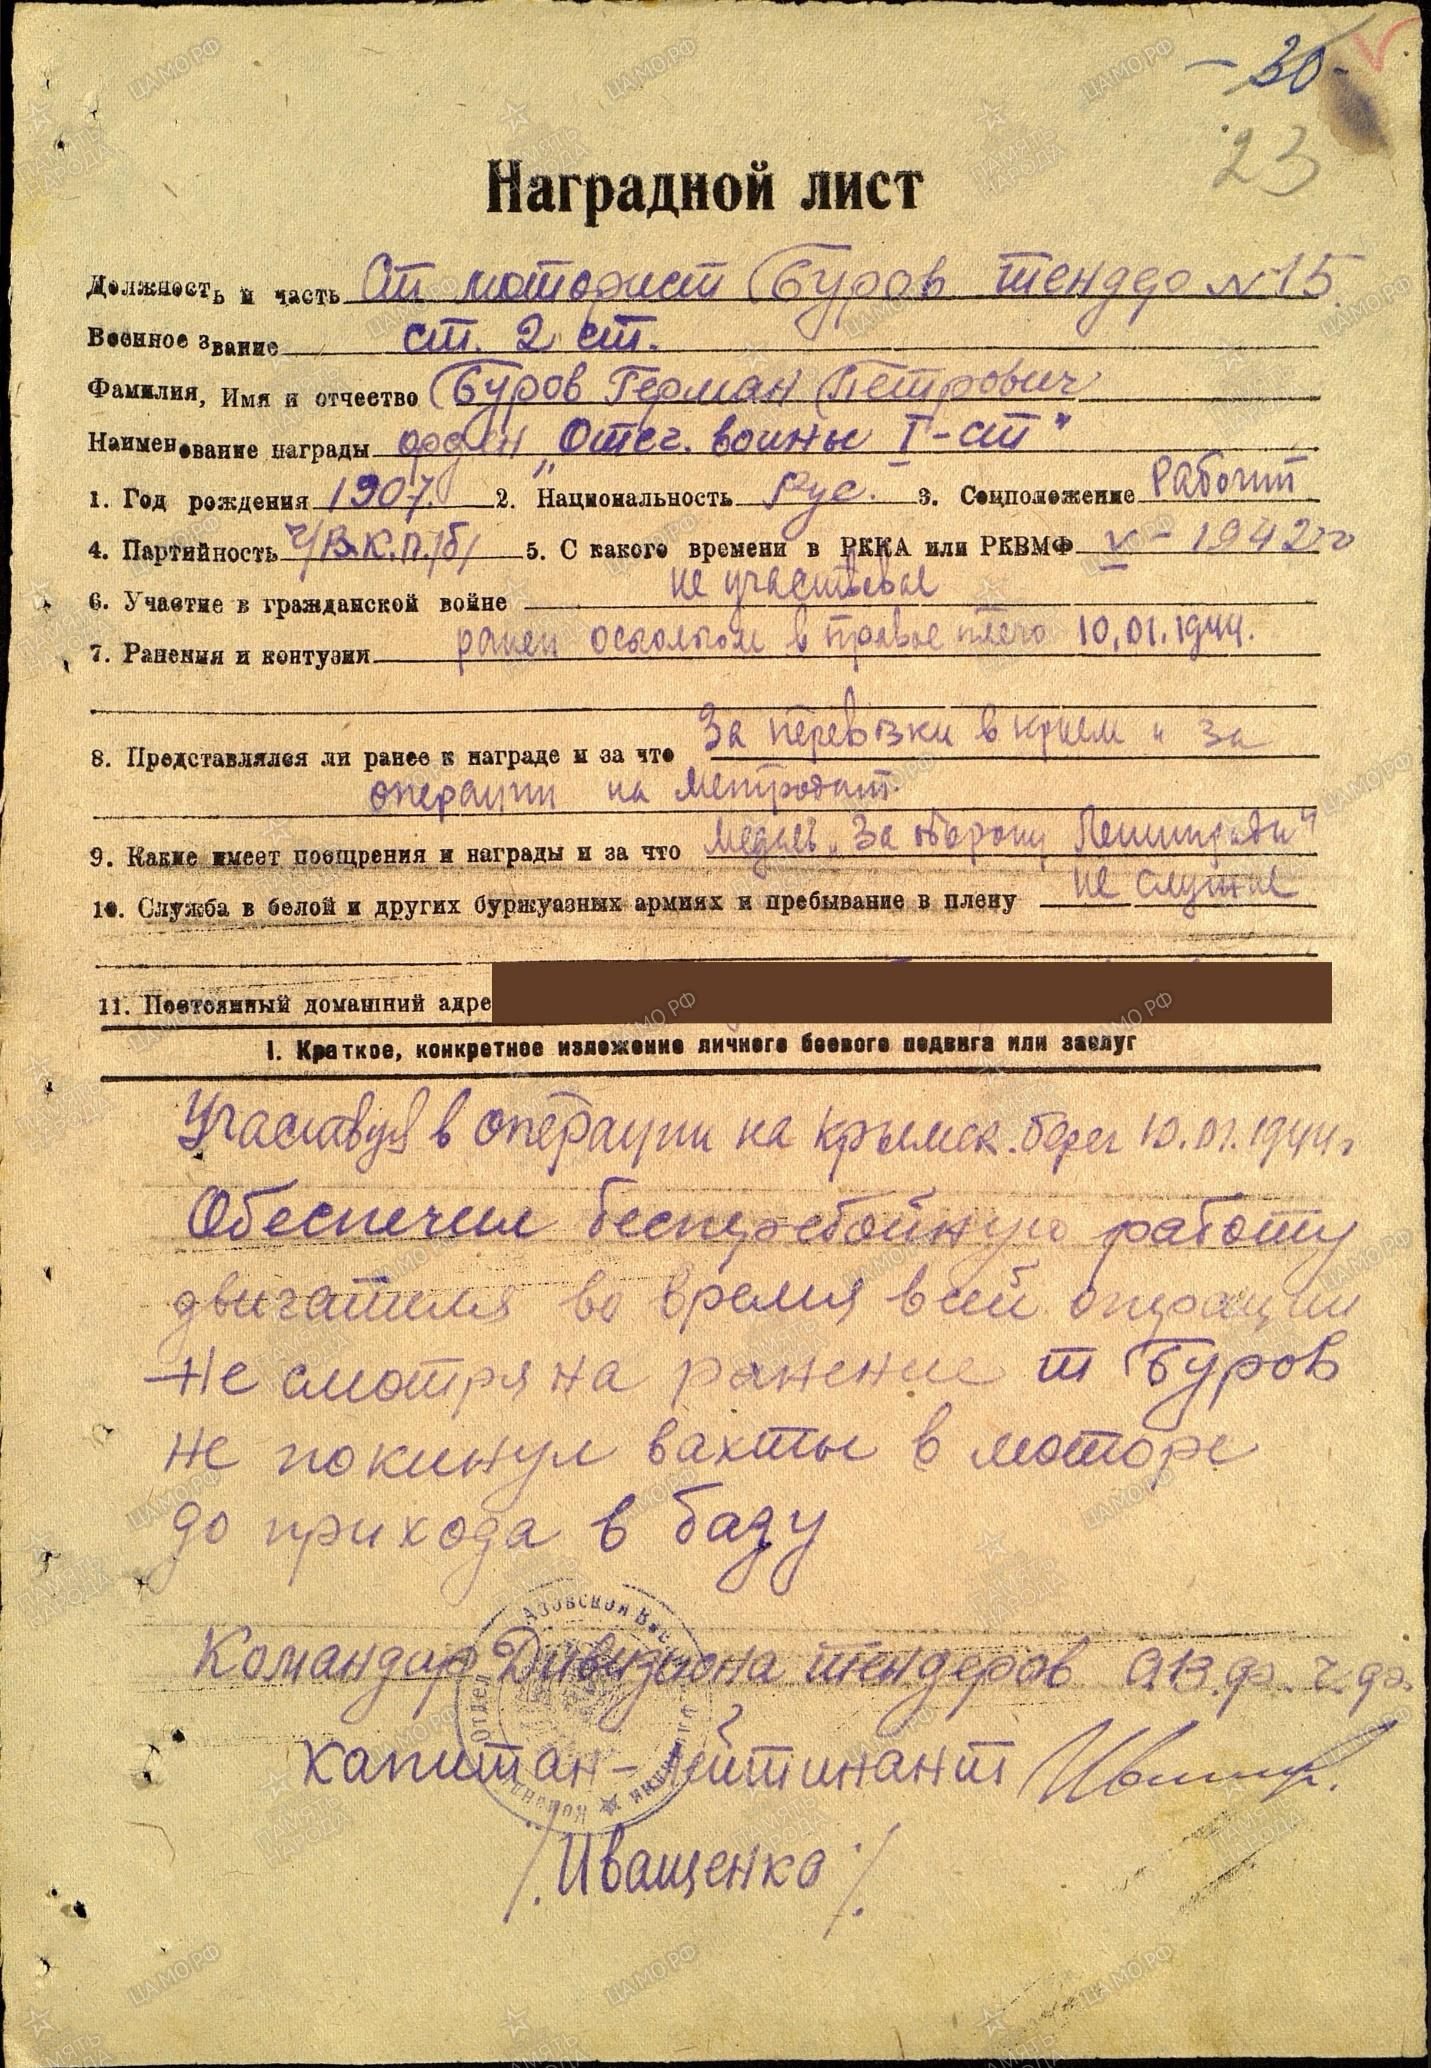 - 30 -
23
Наградной лист
Должность и часть Ст моторист Буров тендера N 15
Военное звание ст. 2 ст.
Фамилия, Имя и отчество Буров Герман Петрович
Наименование награды орден „Отеч. войны I-ст"
1. Год рождения 1907. 2. Национальность Рус. 3. Соцположение Рабочий
4. Партийность ч/В.К.П./б/ 5. С какого времени в РККА или РКВМФ V - 1942 го
6. Участие в гражданской войне не участвовал
7. Ранения и контузии ранен осколком в правое плечо 10.01.1944.
8. Представлялся ли ранее к награде и за что За перевозки в крым и за
операции на Метродат.
9. Какие имеет поощрения и награды и за что Медаль „За оборону Ленинграда"
10. Служба в белой и других буржуазных армиях и пребывание в плену не служил
11. Постоянный домашний адре
I. Краткое, конкретное изложение личного боевого подвига или заслуг
Участвуя в операции на крымск. берег 10.01.1944г
Обеспечил бесперебойную работу
двигателя во время всей операции
Не смотря на ранение т Буров
не покинул вахты в моторе
до прихода в базу
Командир Дивизиона тендеров А.В.ф. Ч.ф.
капитан-лейтинант
/Иващенко/